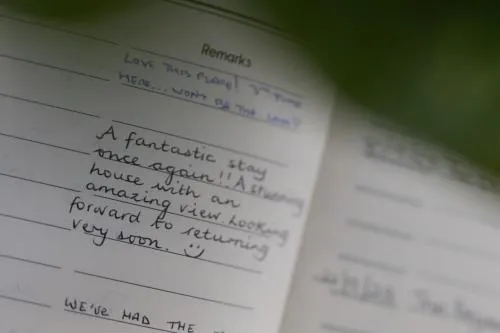 Remarks
LOVE THIS PLACE! 3rd TIME
HERE... WON'T BE THE LAST!
A fantastic stay
once again!! A stunning
house with an
amazing view. Looking
forward to returning
very soon.
WE'VE HAD THE